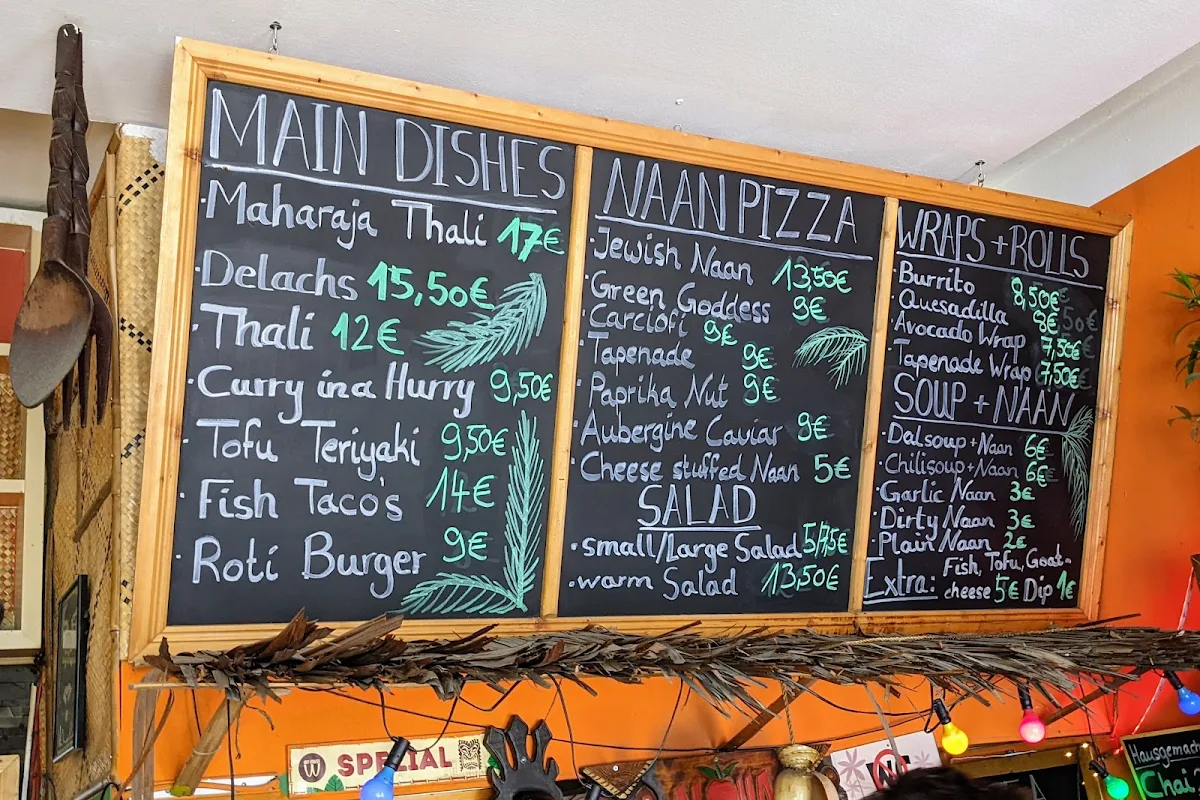 MAIN DISHES
·Maharaja Thali 17€
·Delachs 15,50€
·Thali 12€
·Curry in a Hurry 9,50€
·Tofu Teriyaki 9,50€
·Fish Taco's 14€
·Roti Burger 9€
NAAN PIZZA
·Jewish Naan 13,50€
·Green Goddess 9€
·Carciofi 9€
·Tapenade 9€
·Paprika Nut 9€
·Aubergine Caviar 9€
·Cheese stuffed Naan 5€
SALAD
·small/Large Salad
·warm Salad 13,50€
WRAPS + ROLLS
·Burrito 8,50€
·Quesadilla 8€
·Avocado Wrap 7,50€
·Tapenade Wrap 7,50€
SOUP + NAAN
·Dalsoup+Naan 6€
·Chilisoup+Naan 6€
·Garlic Naan 3€
·Dirty Naan 3€
·Plain Naan 2€
Extra: Fish, Tofu, Goat-
cheese 5€ Dip 1€
SPECIAL
Hausgemacht
Chai